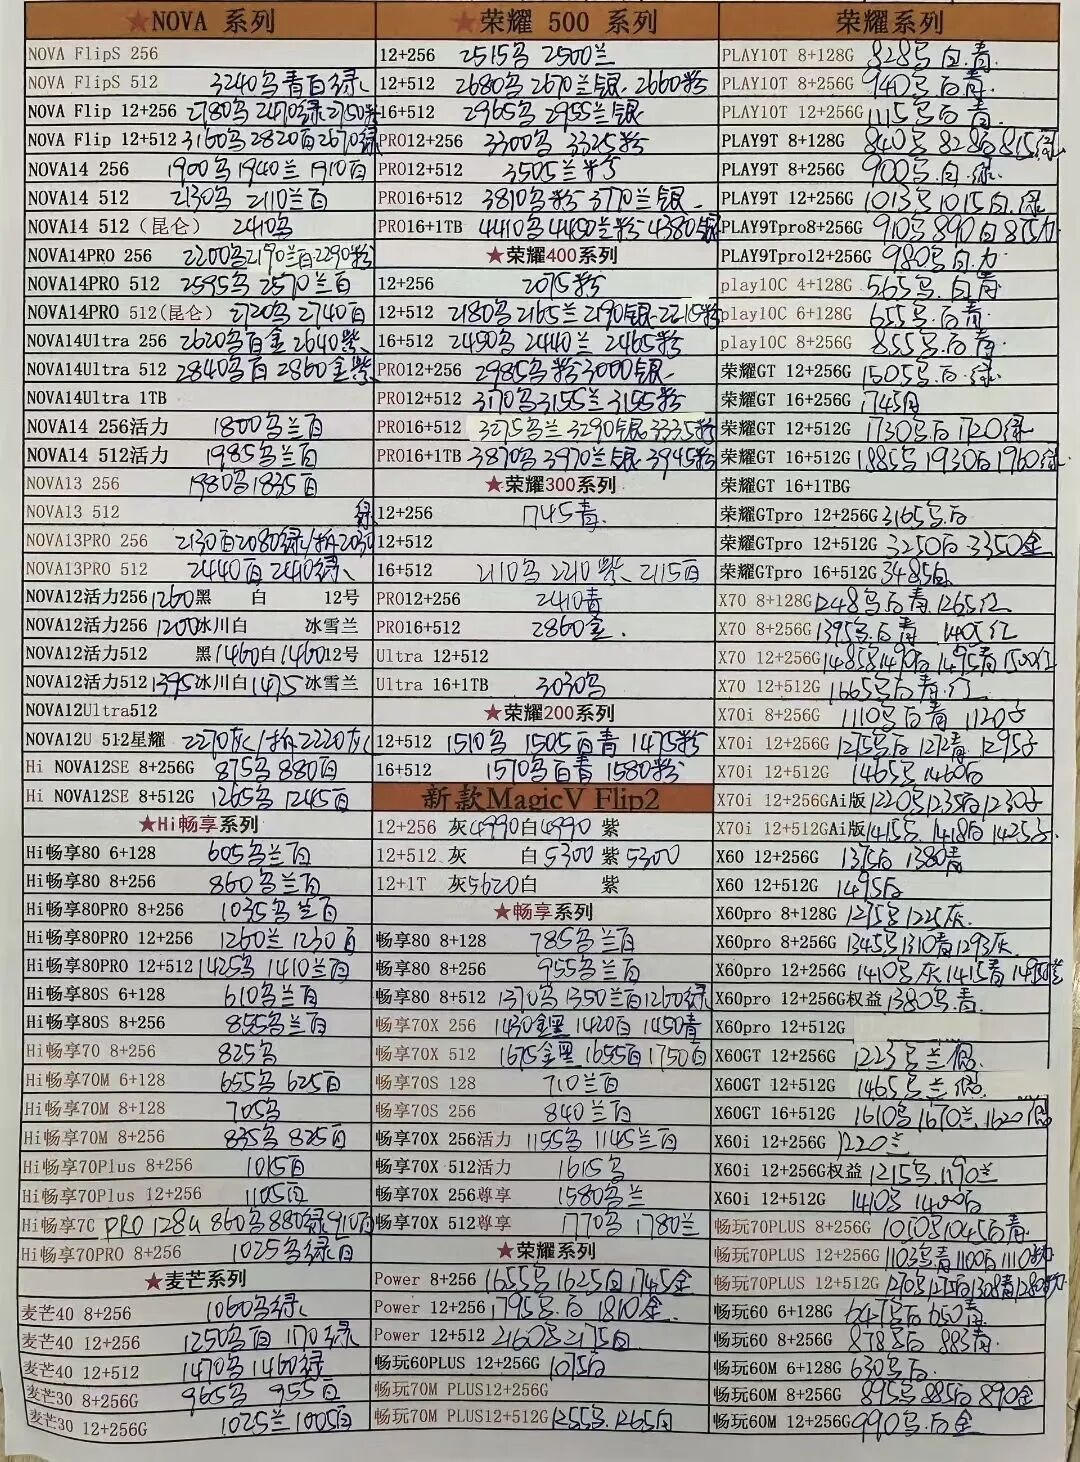 ★NOVA 系列
NOVA FlipS 256
NOVA FlipS 512 3240乌青白绿
NOVA Flip 12+256 2780乌2470绿2750粉
NOVA Flip 12+512 3160乌2820百2670绿
NOVA14 256 1900乌1940兰1910百
NOVA14 512 2130乌 2110兰百
NOVA14 512(昆仑) 2410乌
NOVA14PRO 256 2200乌2190兰百2290粉
NOVA14PRO 512 2595乌 2570兰百
NOVA14PRO 512(昆仑) 2720乌 2740百
NOVA14Ultra 256 2620乌百金2640紫
NOVA14Ultra 512 2840乌百 2860金紫
NOVA14Ultra 1TB
NOVA14 256活力 1800乌兰百
NOVA14 512活力 1985乌兰百
NOVA13 256 1980乌1835百
NOVA13 512 绿
NOVA13PRO 256 2130百2080绿/拆2030
NOVA13PRO 512 2440百 2410绿
NOVA12活力256 1260黑 白 12号
NOVA12活力256 1200冰川白 冰雪兰
NOVA12活力512 黑1460白1460 12号
NOVA12活力512 1395冰川白1475冰雪兰
NOVA12Ultra512
NOVA12U 512星耀 2270灰/拆2220灰
Hi NOVA12SE 8+256G 875乌 880百
Hi NOVA12SE 8+512G 1265乌 1245百
★Hi畅享系列
Hi畅享80 6+128 605乌兰百
Hi畅享80 8+256 860乌兰百
Hi畅享80PRO 8+256 1035乌兰百
Hi畅享80PRO 12+256 1260兰 1230百
Hi畅享80PRO 12+512 1425乌 1410兰百
Hi畅享80S 6+128 610乌兰百
Hi畅享80S 8+256 855乌兰百
Hi畅享70 8+256 825乌
Hi畅享70M 6+128 655乌 625百
Hi畅享70M 8+128 705乌
Hi畅享70M 8+256 835乌 825百
Hi畅享70Plus 8+256 1015百
Hi畅享70Plus 12+256 1105百
Hi畅享7C PRO 128G 860乌880绿910百
Hi畅享70PRO 8+256 1025乌绿百
★麦芒系列
麦芒40 8+256 1060乌绿
麦芒40 12+256 1250乌百 1170绿
麦芒40 12+512 1470乌 1460绿
麦芒30 8+256G 965乌 955百
麦芒30 12+256G 1025兰1005百
★荣耀 500 系列
12+256 2515乌 2500兰
12+512 2680乌 2670兰银 2660粉
16+512 2965乌 2955兰银
PRO12+256 3300乌 3325粉
PRO12+512 3505兰粉
PRO16+512 3810乌粉 3770兰银
PRO16+1TB 4410乌4450兰粉4380银
★荣耀400系列
12+256 2075粉
12+512 2180乌2165兰2190银2215粉
16+512 2450乌 2440兰 2465粉
PRO12+256 2985乌粉3000银
PRO12+512 3170乌3155兰3155粉
PRO16+512 3275乌兰3290银3335粉
PRO16+1TB 3870乌3970兰银3945粉
★荣耀300系列
12+256 1745青
12+512
16+512 2110乌 2210紫 2115百
PRO12+256 2410青
PRO16+512 2860金
Ultra 12+512
Ultra 16+1TB 3030乌
★荣耀200系列
12+512 1510乌 1505百青 1475粉
16+512 1570乌百青 1580粉
新款MagicV Flip2
12+256 灰4990白4990 紫
12+512 灰 白5300 紫5300
12+1T 灰5620白 紫
★畅享系列
畅享80 8+128 785乌兰百
畅享80 8+256 955乌兰百
畅享80 8+512 1370乌1350兰百1260绿
畅享70X 256 1430金黑 1420百 1450青
畅享70X 512 1675金黑 1655百1750百
畅享70S 128 710兰百
畅享70S 256 840兰百
畅享70X 256活力 1155乌 1145兰百
畅享70X 512活力 1615乌
畅享70X 256尊享 1580乌兰
畅享70X 512尊享 1770乌 1780兰
★荣耀系列
Power 8+256 1655乌1625白1745金
Power 12+256 1795乌.白 1810金
Power 12+512 2160乌2175白
畅玩60PLUS 12+256G 1075白
畅玩70M PLUS12+256G
畅玩70M PLUS12+512G 1255乌.1265白
★荣耀系列
PLAY10T 8+128G 828乌.白.青
PLAY10T 8+256G 940乌白青
PLAY10T 12+256G 1115乌白青
PLAY9T 8+128G 840乌 828白815绿
PLAY9T 8+256G 900乌.白.绿
PLAY9T 12+256G 1013乌1015白.绿
PLAY9Tpro8+256G 910乌 890白
PLAY9Tpro12+256G 980乌.白
play10C 4+128G 565乌.白青
play10C 6+128G 655乌.白青
play10C 8+256G 855乌.白青
荣耀GT 12+256G 1505乌.白.绿
荣耀GT 16+256G 1745白
荣耀GT 12+512G 1730乌白 1720绿
荣耀GT 16+512G 1885乌1930白1960绿
荣耀GT 16+1TBG
荣耀GTpro 12+256G 3165乌.白
荣耀GTpro 12+512G 3250白 3350金
荣耀GTpro 16+512G 3485白
X70 8+128G 1248乌白青.1265红
X70 8+256G 1395乌.白青 1405红
X70 12+256G 1485乌1490白1495青1500红
X70 12+512G 1665乌白青.红
X70i 8+256G 1110乌白青 1120子
X70i 12+256G 1275乌白1272青1295子
X70i 12+512G 1465乌1460白
X70i 12+256GAi版1220乌1235白1230子
X70i 12+512GAi版1415乌.1418白1425子
X60 12+256G 1375白 1380青
X60 12+512G 1495白
X60pro 8+128G 1275乌1225灰
X60pro 8+256G 1345乌1310青1293灰
X60pro 12+256G 1410乌灰1415青
X60pro 12+256G权益1380乌.青
X60pro 12+512G
X60GT 12+256G 1223乌兰银
X60GT 12+512G 1465乌兰银
X60GT 16+512G 1610乌1670兰1620银
X60i 12+256G 1220兰
X60i 12+256G权益1215乌.1190兰
X60i 12+512G 1410乌 1400白
畅玩70PLUS 8+256G 1050乌1045白青
畅玩70PLUS 12+256G 1103乌青1100白1110粉
畅玩70PLUS 12+512G 1270乌1275白1308青1280粉
畅玩60 6+128G 647乌白650青
畅玩60 8+256G 878乌白 883青
畅玩60M 6+128G 630乌白
畅玩60M 8+256G 895乌885白890金
畅玩60M 12+256G 990乌.白金